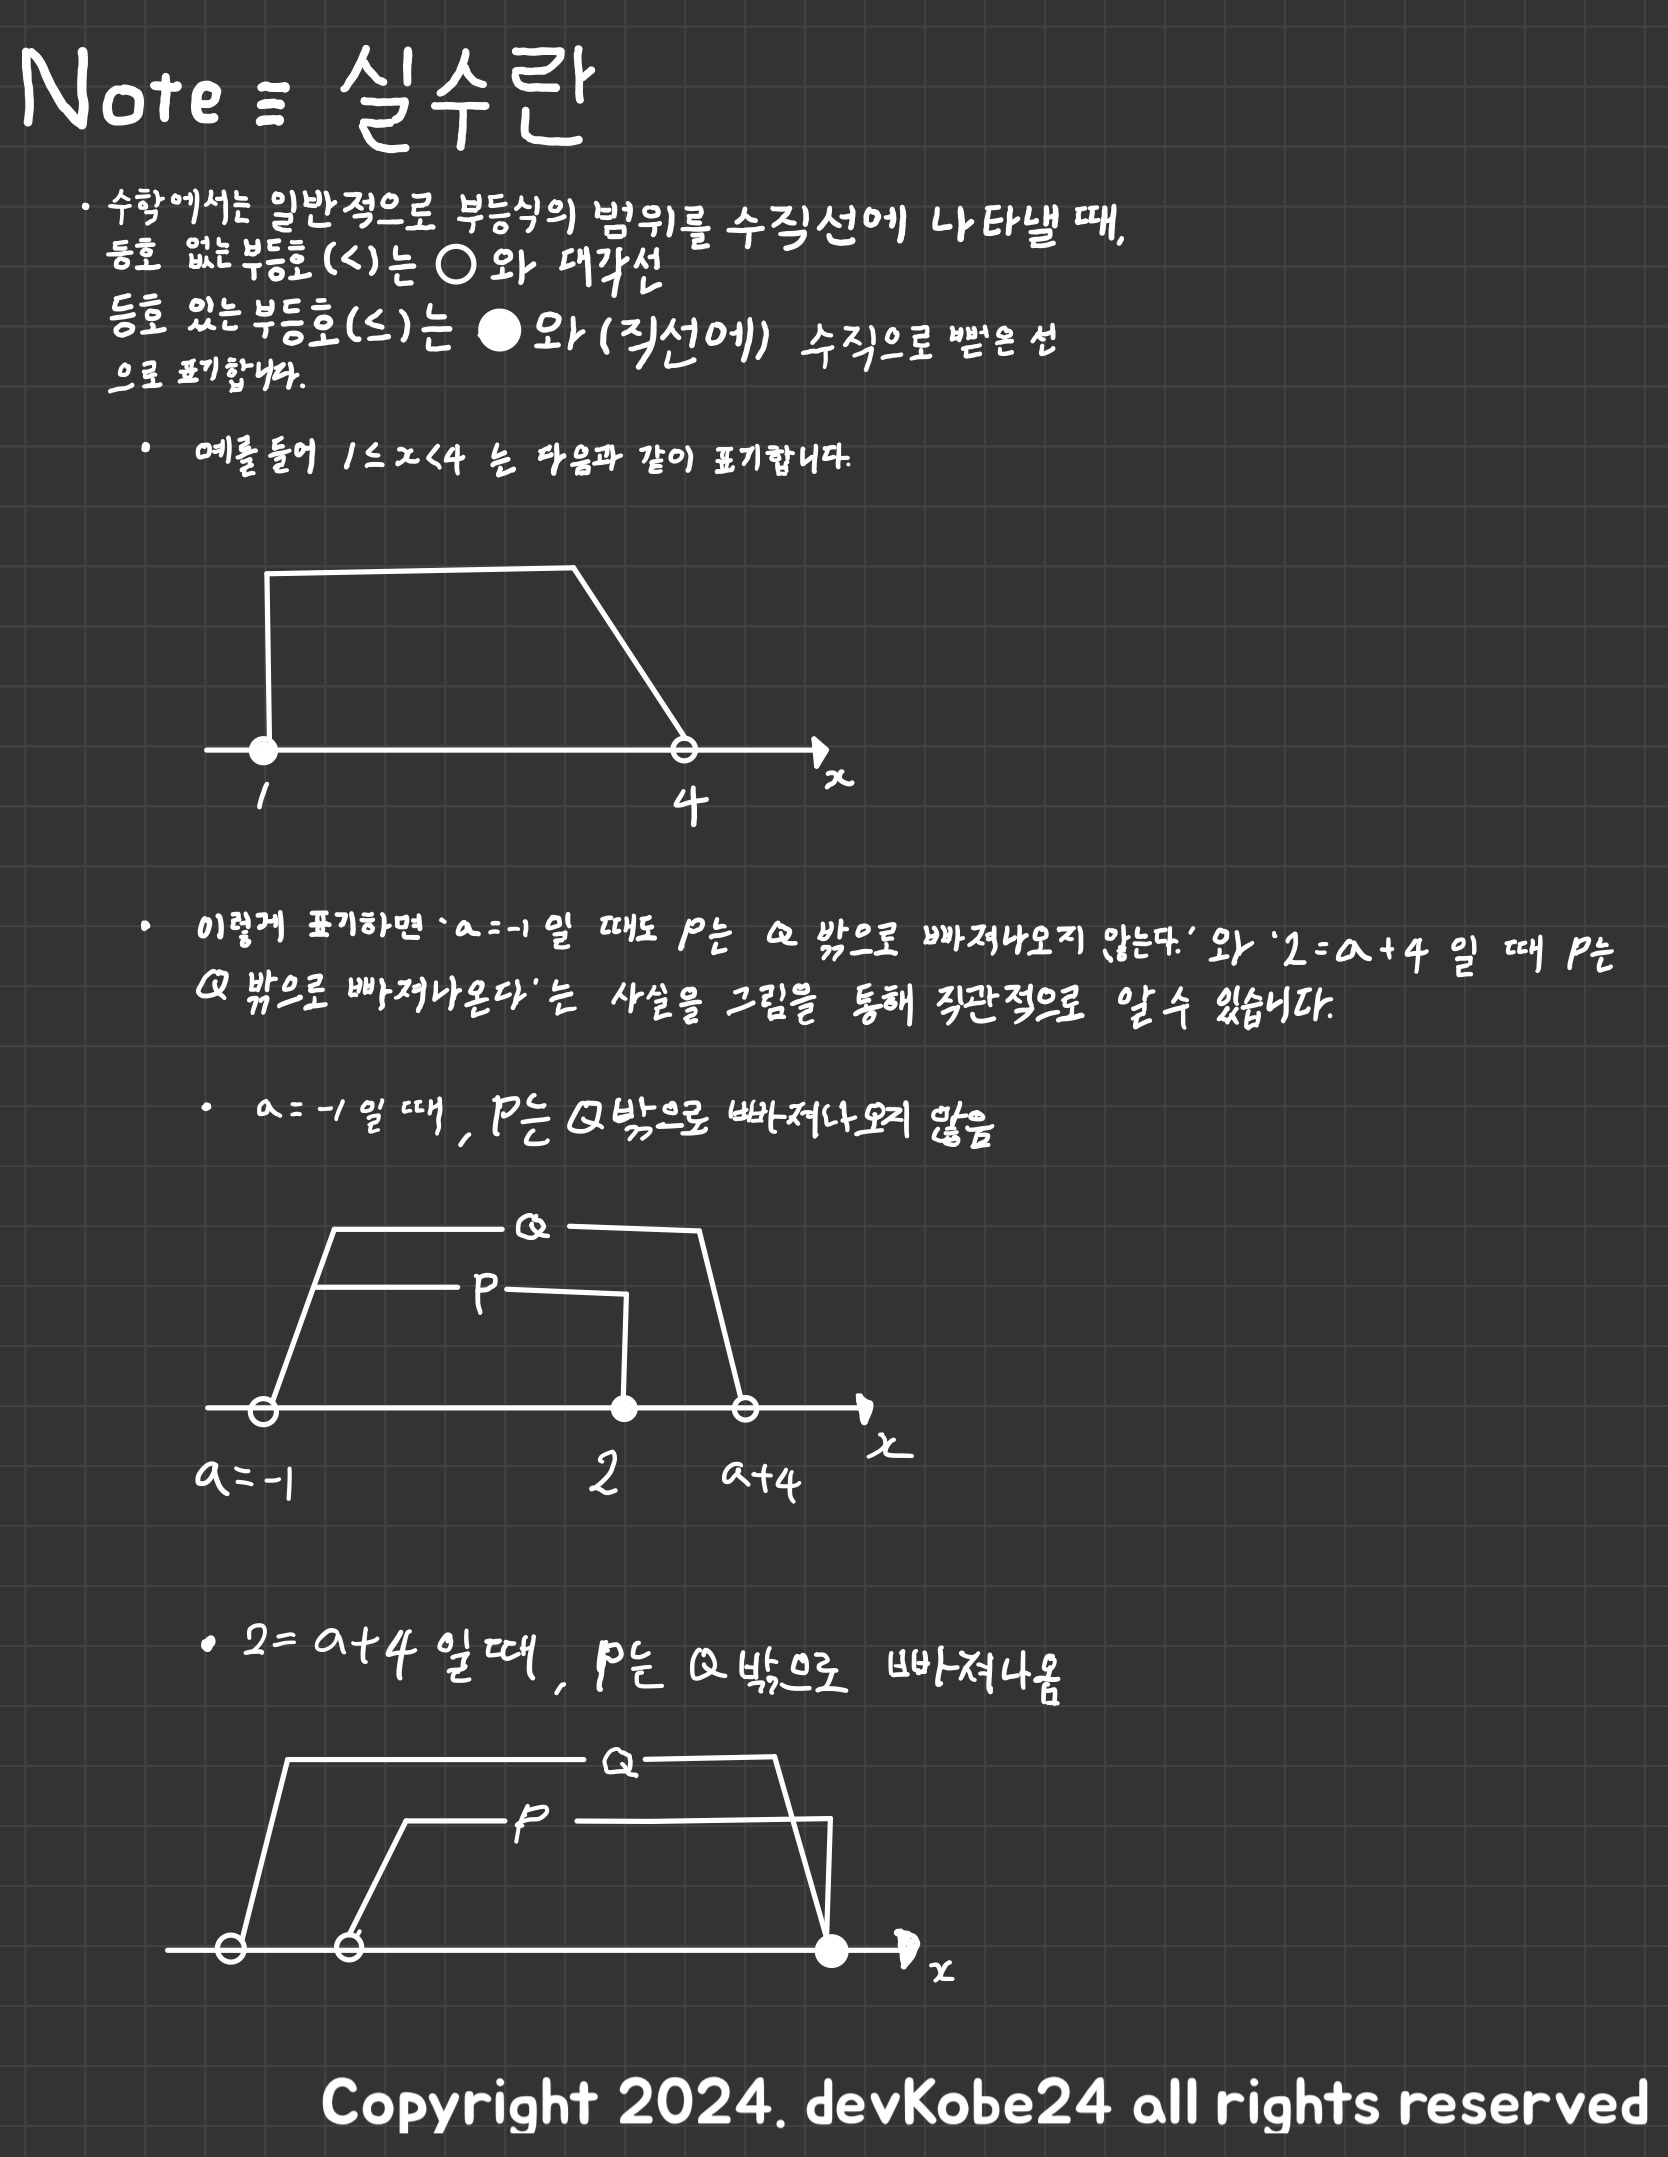 Note ≡ 실수란
• 수학에서는 일반적으로 부등식의 범위를 수직선에 나타낼 때,
등호 없는 부등호(<)는 ○와 대각선
등호 있는 부등호(≤)는 ●와 (직선에) 수직으로 뻗은 선
으로 표기합니다.
• 예를 들어 1≤x<4 는 다음과 같이 표기합니다.
1
4
x
• 이렇게 표기하면 'a=-1 일 때도 P는 Q 밖으로 빠져나오지 않는다.' 와 '2=a+4 일 때 P는
Q 밖으로 빠져나온다'는 사실을 그림을 통해 직관적으로 알 수 있습니다.
• a=-1 일 때, P는 Q 밖으로 빠져나오지 않음
Q
P
x
a=-1
2
a+4
• 2=a+4 일 때, P는 Q 밖으로 빠져나옴
Q
P
x
Copyright 2024. devKobe24 all rights reserved